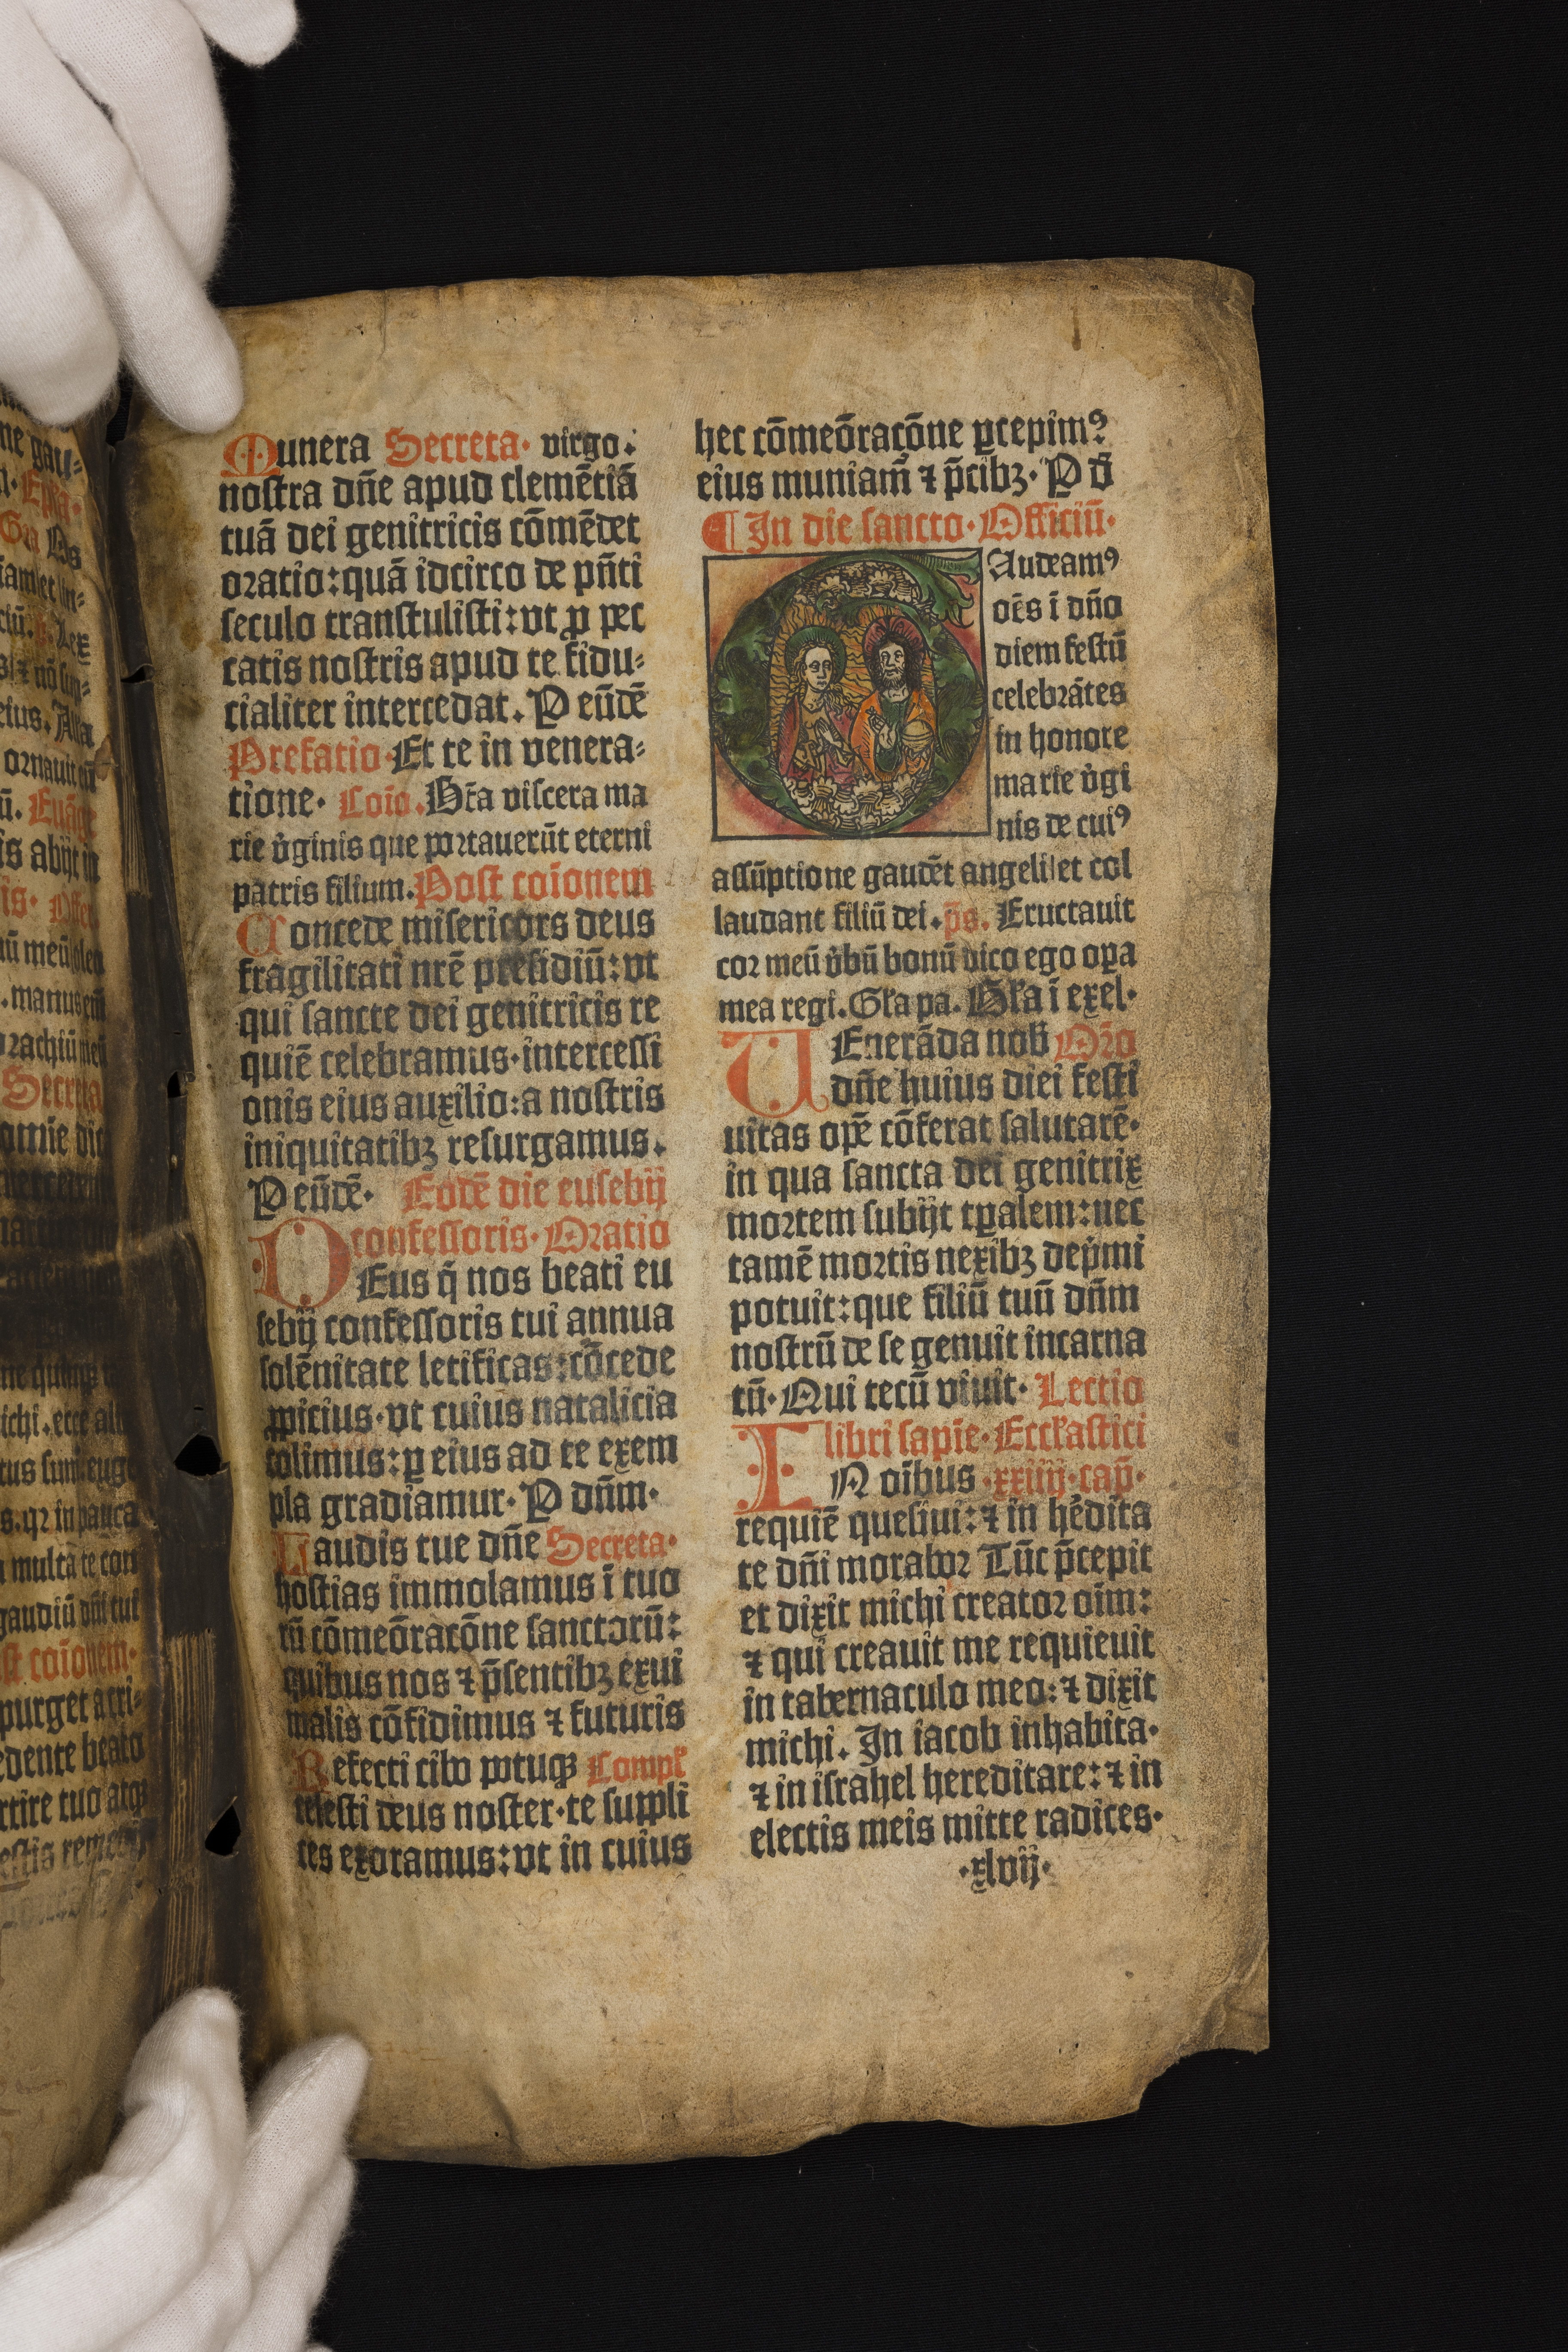 Munera Secreta· virgo:
nostra dn̄e apud clemētiā
tuā dei genitricis cōmēdet
oratio: quā idcirco de pn̄ti
seculo transtulisti: vt ꝓ pec
catis nostris apud te fidu⸗
cialiter intercedat. P eūdē
Prefatio· Et te in venera⸗
tione· Coīo. Btā viscera ma
rie v̓ginis que portauerūt eterni
patris filium. Post coīonem
Concede misericors deus
fragilitati nrē presidiū: vt
qui sancte dei genitricis re
quiē celebramus· intercessi
onis eius auxilio: a nostris
iniquitatibꝫ resurgamus.
P eūdē· Eodē die eusebij
confessoris· Oratio
DEus q̄ nos beati eu
sebij confessoris tui annua
solēnitate letificas: cōcede
ꝓpicius· vt cuius natalicia
colimus: ꝑ eius ad te exem
pla gradiamur· P dn̄m·
Laudis tue dn̄e Secreta·
hostias immolamus ī tuo
rū cōmeōracōne sanctorū:
quibus nos ⁊ p̄sentibꝫ exui
malis cōfidimus ⁊ futuris
Refecti cibo potuqꝫ Compł
celesti deus noster· te suppli
ces exoramus: vt in cuius
hec cōmeōracōne ꝑcepimꝰ
eius muniam̄ ⁊ p̄cibꝫ· P d̄
¶ In die sancto· Officiū·
GAudeamꝰ
oēs ī dn̄o
diem festū
celebrātes
in honore
marie v̓gi
nis de cuiꝰ
assūptione gaudēt angeli et col
laudant filiū dei. p̄s. Eructauit
cor meū v̓bū bonū dico ego oꝑa
mea regi. Gła pa. Gła ī exel·
UEnerāda nob̄ Or̄o
dn̄e huius diei festi
uitas opē cōferat salutarē·
in qua sancta dei genitrix
mortem subijt tꝑalem: nec
tamē mortis nexibꝫ dep̓mi
potuit: que filiū tuū dn̄m
nostrū de se genuit incarna
tū· Qui tecū viuit· Lectio
libri sapīe· Eccłastici
IN oībus ·xxiiij· cap̄·
requiē quesiui: ⁊ in he̓dita
te dn̄i morabor Tūc p̄cepit
et dixit michi creator oīm:
⁊ qui creauit me requieuit
in tabernaculo meo: ⁊ dixit
michi. In iacob inhabita·
⁊ in israhel hereditare: ⁊ in
electis meis mitte radices·
·xlvij·